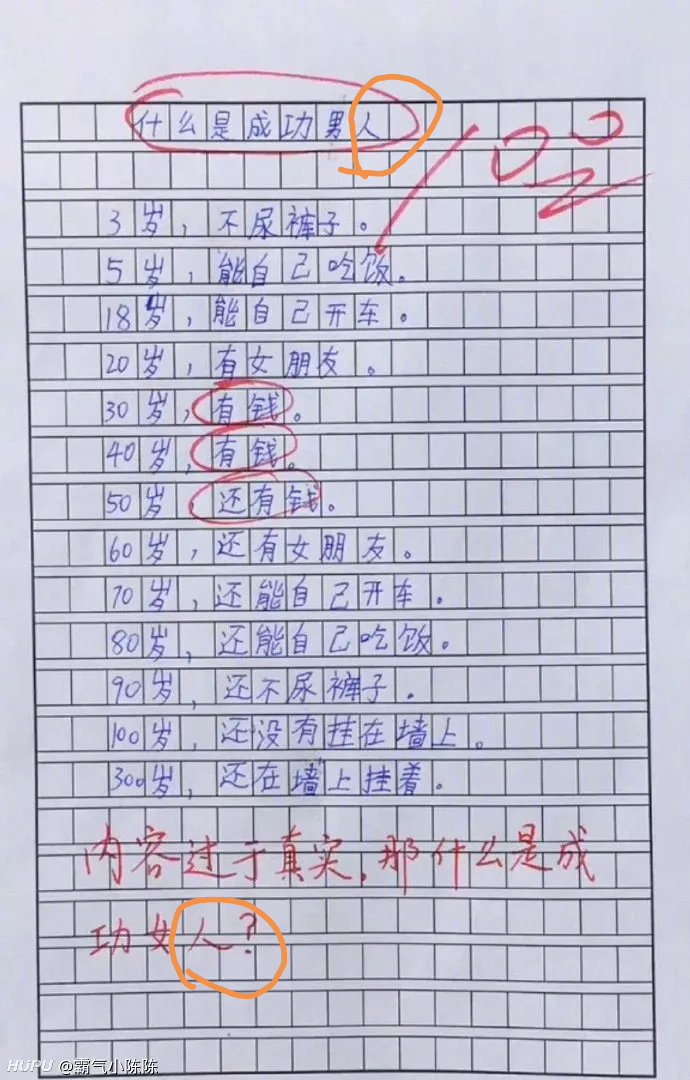 什么是成功男人
100
3岁，不尿裤子。
5岁，能自己吃饭。
18岁，能自己开车。
20岁，有女朋友。
30岁，有钱。
40岁，有钱。
50岁，还有钱。
60岁，还有女朋友。
70岁，还能自己开车.
80岁，还能自己吃饭。
90岁，还不尿裤子.
100岁，还没有挂在墙上。
300岁，还在墙上挂着。
内容过于真实，那什么是成
功女人？
HUPU @霸气小陈陈